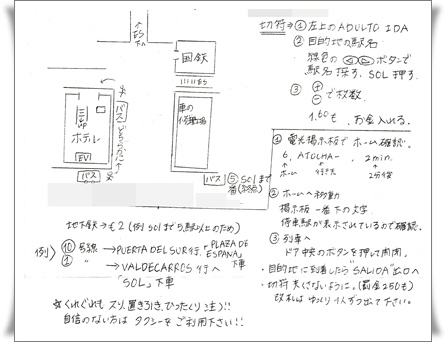 切符⇒①左上のADULTO IDA
②目的地の駅名
緑色の◁ ▷ボタンで
駅名探す、SOL押す。
③ + − で枚数
1.60€ お金入れる。
国鉄
車の
修理工場
ホテル
UP
EV
バス
バス
バス
⑤ SOLまで
①電光掲示板でホーム確認。
6, ATOCHA-, 2min.
ホーム 行き先 2分後
②ホームへ移動
掲示板 一番下の文字
停車駅が表示されているので確認。
③列車へ
ドア中央のボタンを押して開閉。
・目的地に到着したら"SALIDA"出口へ
・切符失くさないように。(罰金250€)
改札はゆっくり1人ずつ出て下さい。
地下鉄→€2 (例 SOLまで5駅以上のため)
例) ⑩号線→PUERTA DEL SUR行「PLAZA DE ESPAÑA」下車
① 〃 →VALDECARROS行へ
「SOL」下車
☆くれぐれもスリ、置き引き、ひったくり注)!!
自信のない方はタクシーをご利用下さい!!